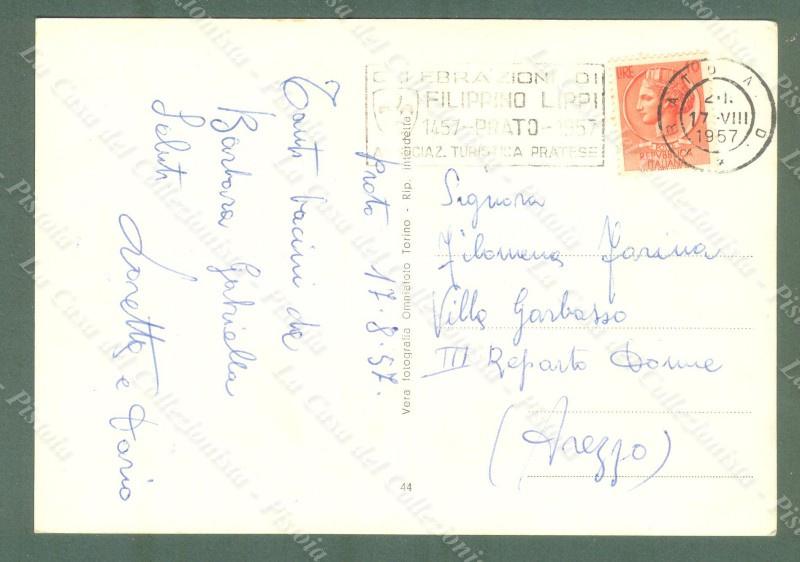 CELEBRAZIONI DI
FILIPPINO LIPPI
1457-PRATO-1957
ASSOCIAZ. TURISTICA PRATESE
LIRE 10
REPUBBLICA
ITALIANA
PRATO A.D.
21.
17.VIII
1957
Prato 17.8.57.
Tanti bacini da
Barbara Gabriella
Saluti
Loretta e Dario
Vera fotografia Omniafoto Torino - Rip. interdetta
44
Signora
Filomena Farina
Villa Garbasso
III Reparto Donne
(Arezzo)
La Casa del Collezionista - Pistoia